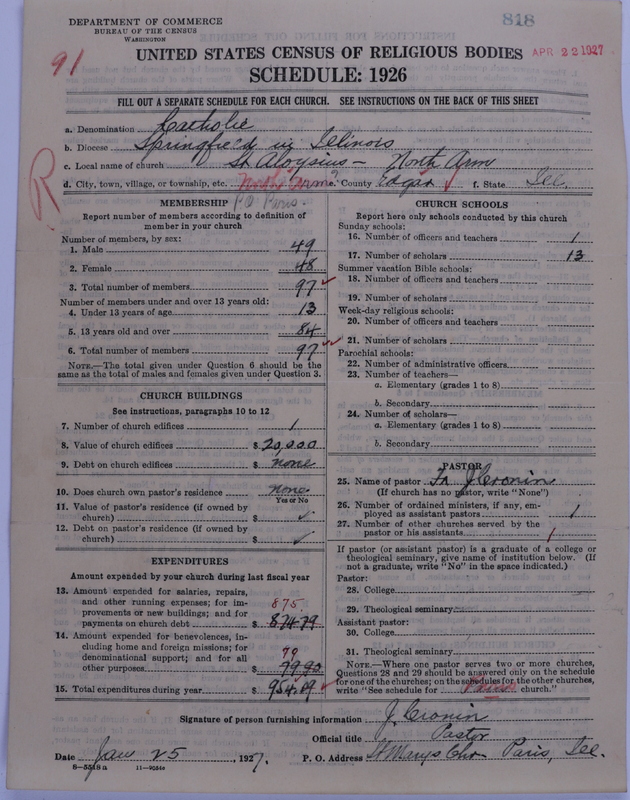 DEPARTMENT OF COMMERCE
BUREAU OF THE CENSUS
WASHINGTON
818
91
UNITED STATES CENSUS OF RELIGIOUS BODIES
APR 22 1927
SCHEDULE: 1926
FILL OUT A SEPARATE SCHEDULE FOR EACH CHURCH. SEE INSTRUCTIONS ON THE BACK OF THIS SHEET
a. Denomination Catholic
b. Diocese Springfield in Illinois
c. Local name of church St Aloysius – North Arm
d. City, town, village, or township, etc. North Arm? e. County Edgar f. State Ill
R
P.O. Paris.
MEMBERSHIP
Report number of members according to definition of
member in your church
Number of members, by sex:
1. Male 49
2. Female 48
3. Total number of members 97
Number of members under and over 13 years old:
4. Under 13 years of age 13
5. 13 years old and over 84
6. Total number of members 97
NOTE.—The total given under Question 6 should be the
same as the total of males and females given under Question 3.
CHURCH BUILDINGS
See instructions, paragraphs 10 to 12
7. Number of church edifices 1
8. Value of church edifices $ 20,000
9. Debt on church edifices $ none
10. Does church own pastor's residence none
Yes or No
11. Value of pastor's residence (if owned by
church) $
12. Debt on pastor's residence (if owned by
church) $
EXPENDITURES
Amount expended by your church during last fiscal year
13. Amount expended for salaries, repairs,
and other running expenses; for im-
provements or new buildings; and for
payments on church debt $ 874.79
875.
14. Amount expended for benevolences, in-
cluding home and foreign missions; for
denominational support; and for all
other purposes $ 79.92
79
15. Total expenditures during year $ 954.
CHURCH SCHOOLS
Report here only schools conducted by this church
Sunday schools:
16. Number of officers and teachers 1
17. Number of scholars 13
Summer vacation Bible schools:
18. Number of officers and teachers
19. Number of scholars
Week-day religious schools:
20. Number of officers and teachers
21. Number of scholars
Parochial schools:
22. Number of administrative officers
23. Number of teachers—
a. Elementary (grades 1 to 8)
b. Secondary
24. Number of scholars—
a. Elementary (grades 1 to 8)
b. Secondary
PASTOR
25. Name of pastor J Cronin
(If church has no pastor, write "None")
26. Number of ordained ministers, if any, em-
ployed as assistant pastors 1
27. Number of other churches served by the
pastor or his assistants 1
If pastor (or assistant pastor) is a graduate of a college or
theological seminary, give name of institution below. (If
not a graduate, write "No" in the space indicated.)
Pastor:
28. College
29. Theological seminary
Assistant pastor:
30. College
31. Theological seminary
NOTE.—Where one pastor serves two or more churches,
Questions 28 and 29 should be answered only on the schedule
for one of the churches; on the schedules for the other churches,
write "See schedule for Paris church."
Signature of person furnishing information J. Cronin
Official title Pastor
Date Jan 25, 1927. P. O. Address St Marys Chr Paris, Ill.
8—5518 a 11—9054